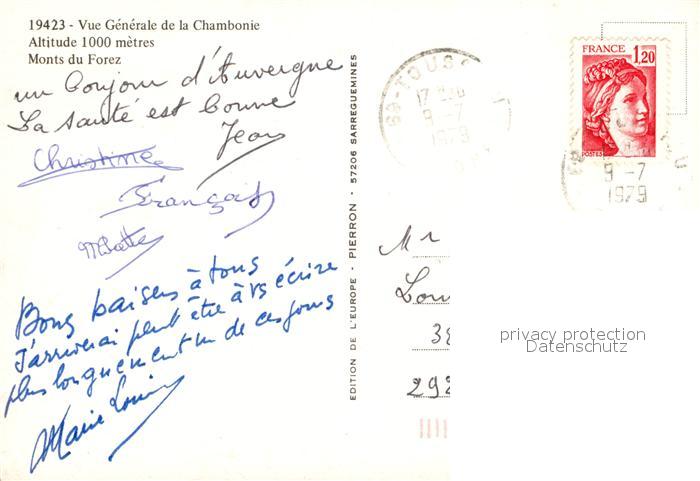 19423 - Vue Générale de la Chambonie
Altitude 1000 mètres
Monts du Forez
un bonjour d'Auvergne
La santé est bonne
Jean
Christine
François
Bons baisers à tous
J'arriverai peut être à vs écrire
plus longuement un de ces jours
Marie Louise
EDITION DE L'EUROPE - PIERRON - 57206 SARREGUEMINES
63-
17 H
9-7
1979
FRANCE 1,20
POSTES
9-7
1979
Mr
Lou
38
292
privacy protection
Datenschutz